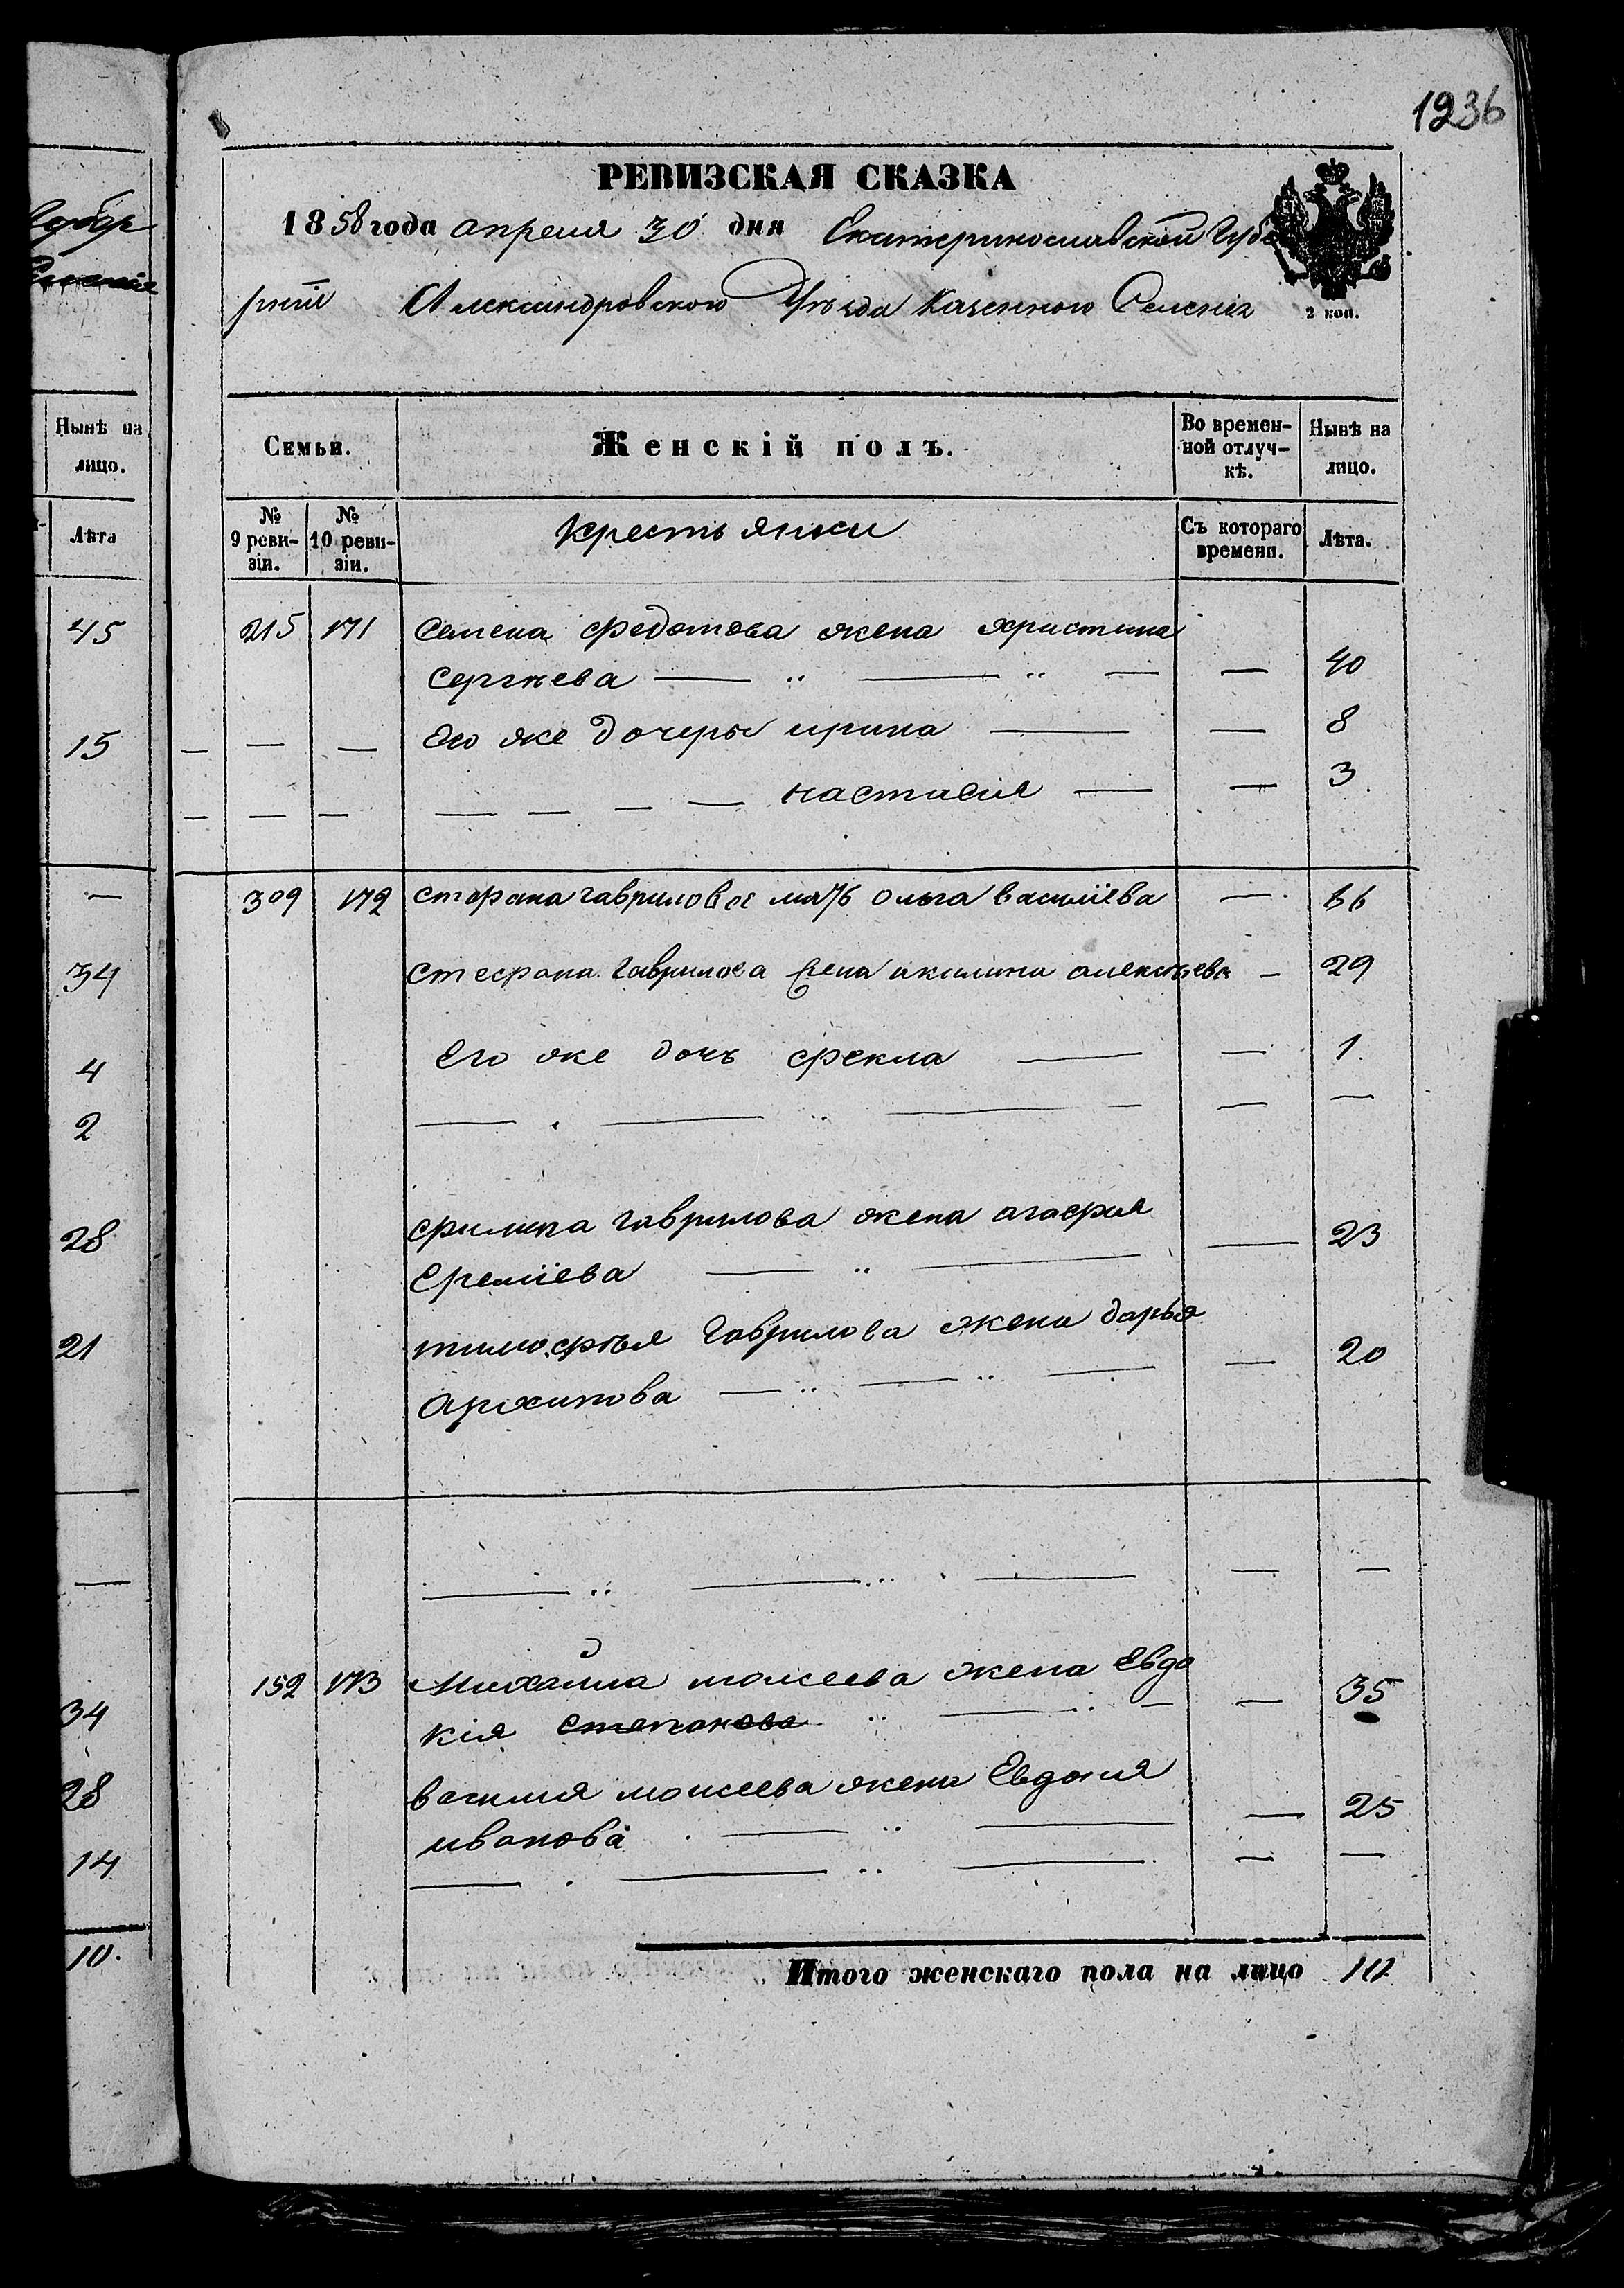 1236
РЕВИЗСКАЯ СКАЗКА
1858 года апреля 30 дня Екатеринославской Губе
рніи Александровского Уѣзда Казенного Селенія
2 коп.
Нынѣ на лицо.
Лѣта
45
15
—
34
4
2
28
21
—
34
28
14
10.
Семьи.
Женскій полъ.
Во временной отлучкѣ.
Нынѣ на лицо.
№ 9 ревизіи.
№ 10 ревизіи.
крестьянки
Съ котораго времени.
Лѣта.
215 171 Семена Федотова жена христина
Сергѣева — " — " — — 40
— — — Его же дочеры ирина — — 8
— — — — — — — настасия — — 3
309 172 стефана гаврилова мать ольга василіева — 66
стефана гаврилова жена акилина алексѣева — 29
Его же дочь фекла — — 1.
— . — " — — — —
филипа гаврилова жена агафия
Еремієва — " — — 23
тимофѣя гаврилова жена дарья
архипова — " — " — — 20
— " — " . — — —
152 173 Михайла моисеева жена Евдо
кія степанова " — . — — 35
василия моисеева жена Евдокия
иванова . — " — — 25
— . — " — — —
Итого женскаго пола на лицо 10